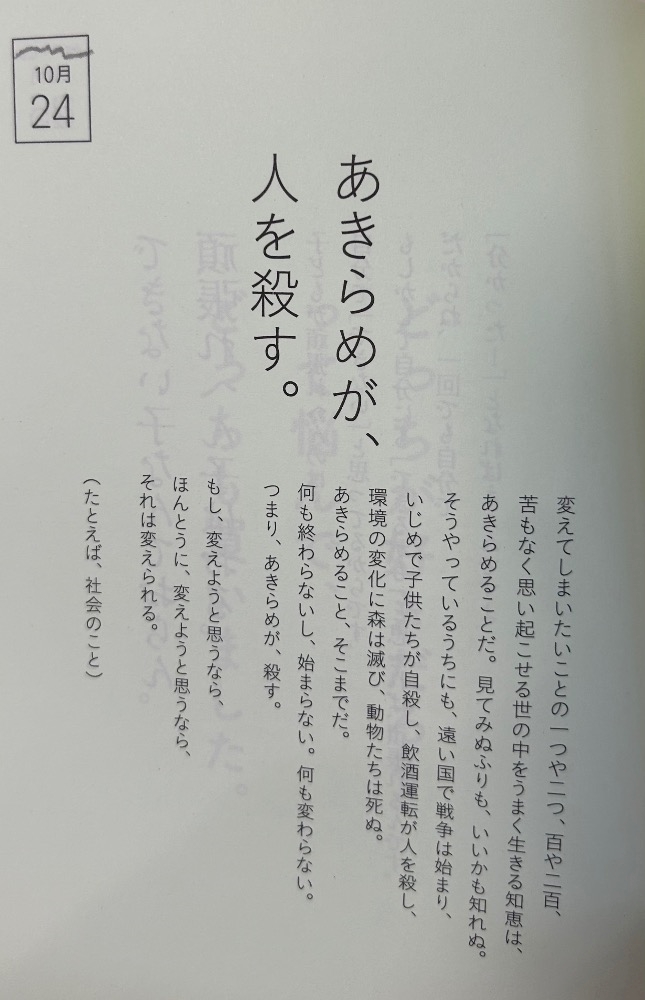 10月
24
あきらめが、
人を殺す。
変えてしまいたいことの一つや二つ、百や二百、
苦もなく思い起こせる世の中をうまく生きる知恵は、
あきらめることだ。見てみぬふりも、いいかも知れぬ。
そうやっているうちにも、遠い国で戦争は始まり、
いじめで子供たちが自殺し、飲酒運転が人を殺し、
環境の変化に森は滅び、動物たちは死ぬ。
あきらめること、そこまでだ。
何も終わらないし、始まらない。何も変わらない。
つまり、あきらめが、殺す。
もし、変えようと思うなら、
ほんとうに、変えようと思うなら、
それは変えられる。
（たとえば、社会のこと）